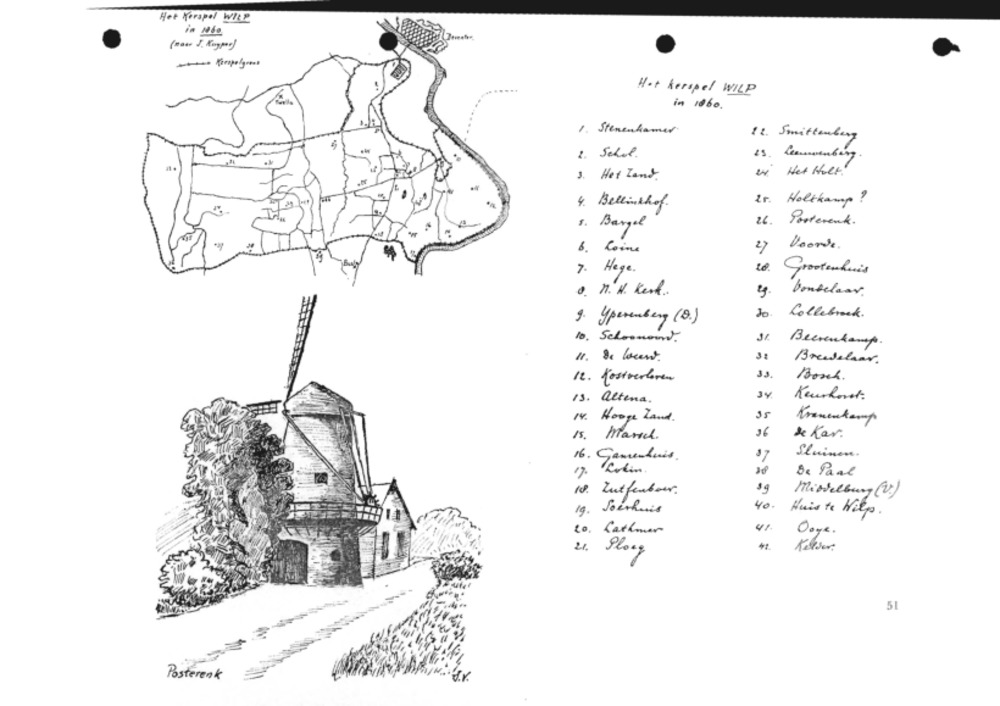 Het Kerspel WILP
in 1860.
(naar J. Kuyper)
Kerspelgrens
Deventer
Twello
Posterenk
J.V.
Het kerspel WILP
in 1860.
1. Stenenkamer
2. Schol.
3. Het Zand.
4. Bellinkhof.
5. Bargel
6. Loine
7. Hege.
8. N. H. Kerk.
9. Yperenberg (D.)
10. Schoonoord.
11. De Weerd.
12. Kostverloren
13. Altena.
14. Hooge Zand.
15. Marsch.
16. Ganzenhuis.
17. Lokin.
18. Zutfenboer.
19. Soerhuis
20. Lathmer
21. Ploeg
22. Smittenberg
23. Leeuwenberg.
24. Het Holt.
25. Holtkamp?
26. Posterenk.
27 Voorde.
28. Grootenhuis
29. Vondelaar.
30. Lollebroek.
31. Beerenkamp.
32 Breedelaar.
33. Bosch.
34. Keurhorst.
35 Kranenkamp
36 de Kar.
37 Sluinen.
38 De Paal
39 Middelburg (V.)
40. Huis te Wilp.
41. Ooye.
42. Kelder.
51